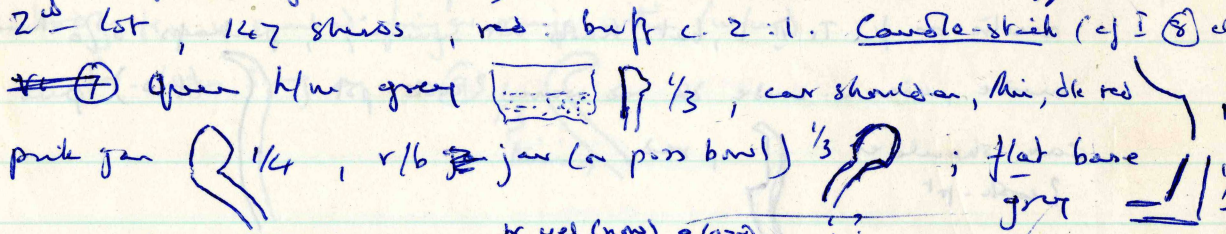 2nd lot, 147 sherds, red : buff c. 2.1. Candle-stick (cf I ⑧)
⑦ grey 1/3, car shoulder, thin, dk red
pink jar 1/4, r/b jar (or poss bowl) 1/3, flat base
grey